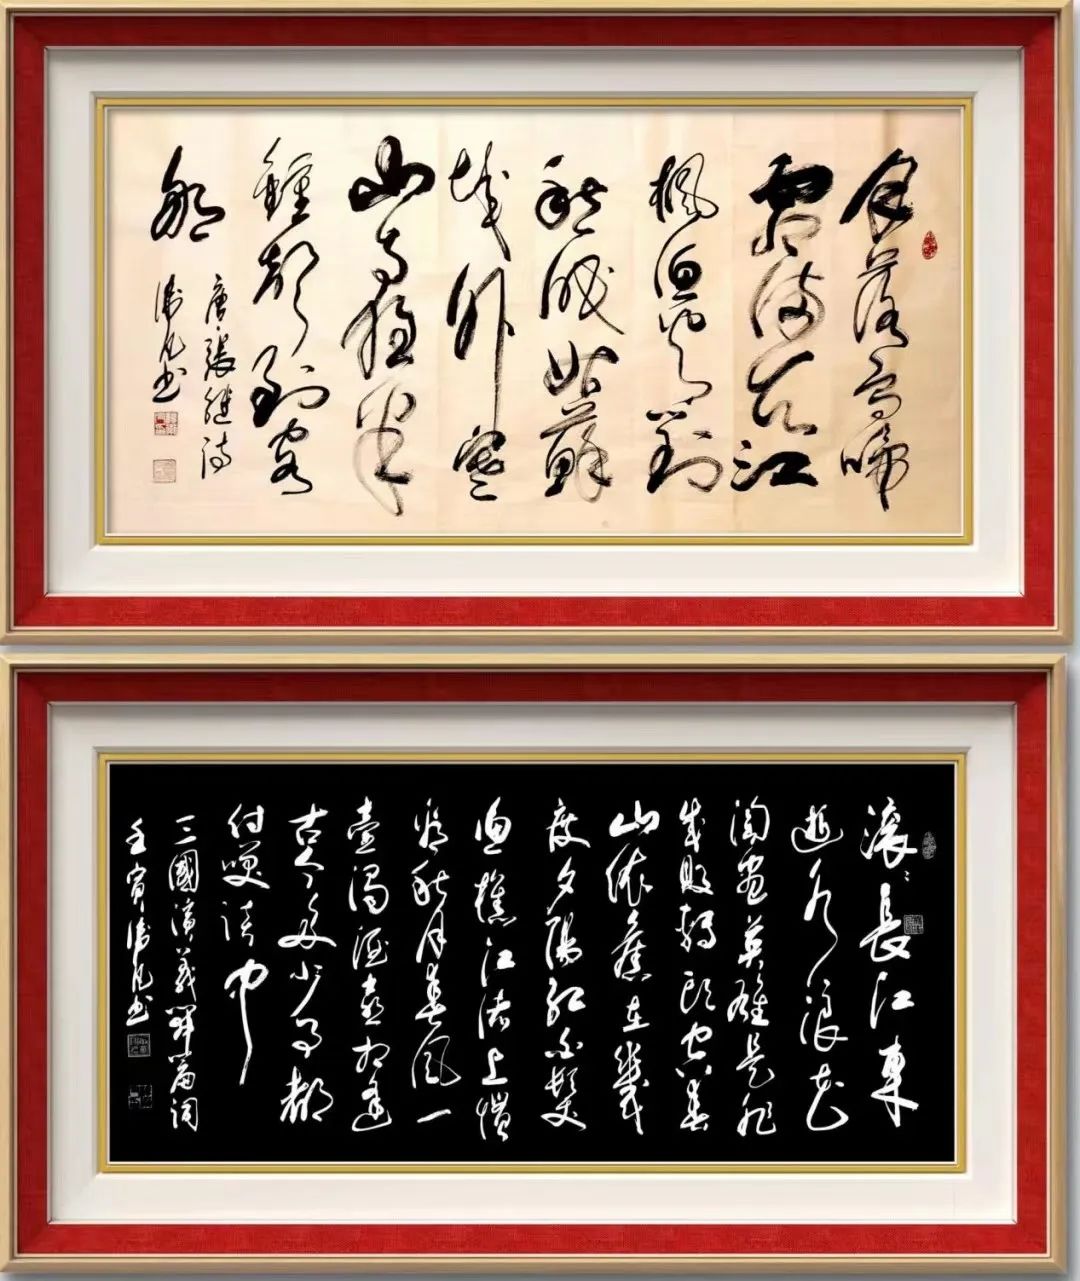 月落烏啼
霜滿天江
楓漁火對
愁眠姑蘇
城外寒
山寺夜半
鐘聲到客
船
唐張繼詩
凡書
滾滾長江東
逝水浪花
淘盡英雄是非
成敗轉頭空青
山依舊在幾
度夕陽紅白髮
漁樵江渚上慣
看秋月春風一
壺濁酒喜相逢
古今多少事都
付笑談中
三國演義開篇詞
壬寅凡書